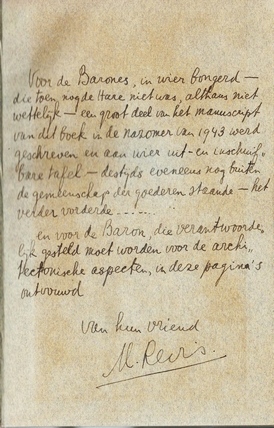 Voor de Barones, in wier bongerd —
die toen nog de Hare niet was, althans niet
wettelijk — een groot deel van het manuscript
van dit boek in de nazomer van 1943 werd
geschreven en aan wier uit- en inschuif-
bare tafel — destijds eveneens nog buiten
de gemeenschap der goederen staande — het
verder vorderde.......
en voor de Baron, die verantwoorde-
lijk gesteld moet worden voor de archi-
tectonische aspecten, in deze pagina's
ontvouwd
van hun vriend
M. Revis.